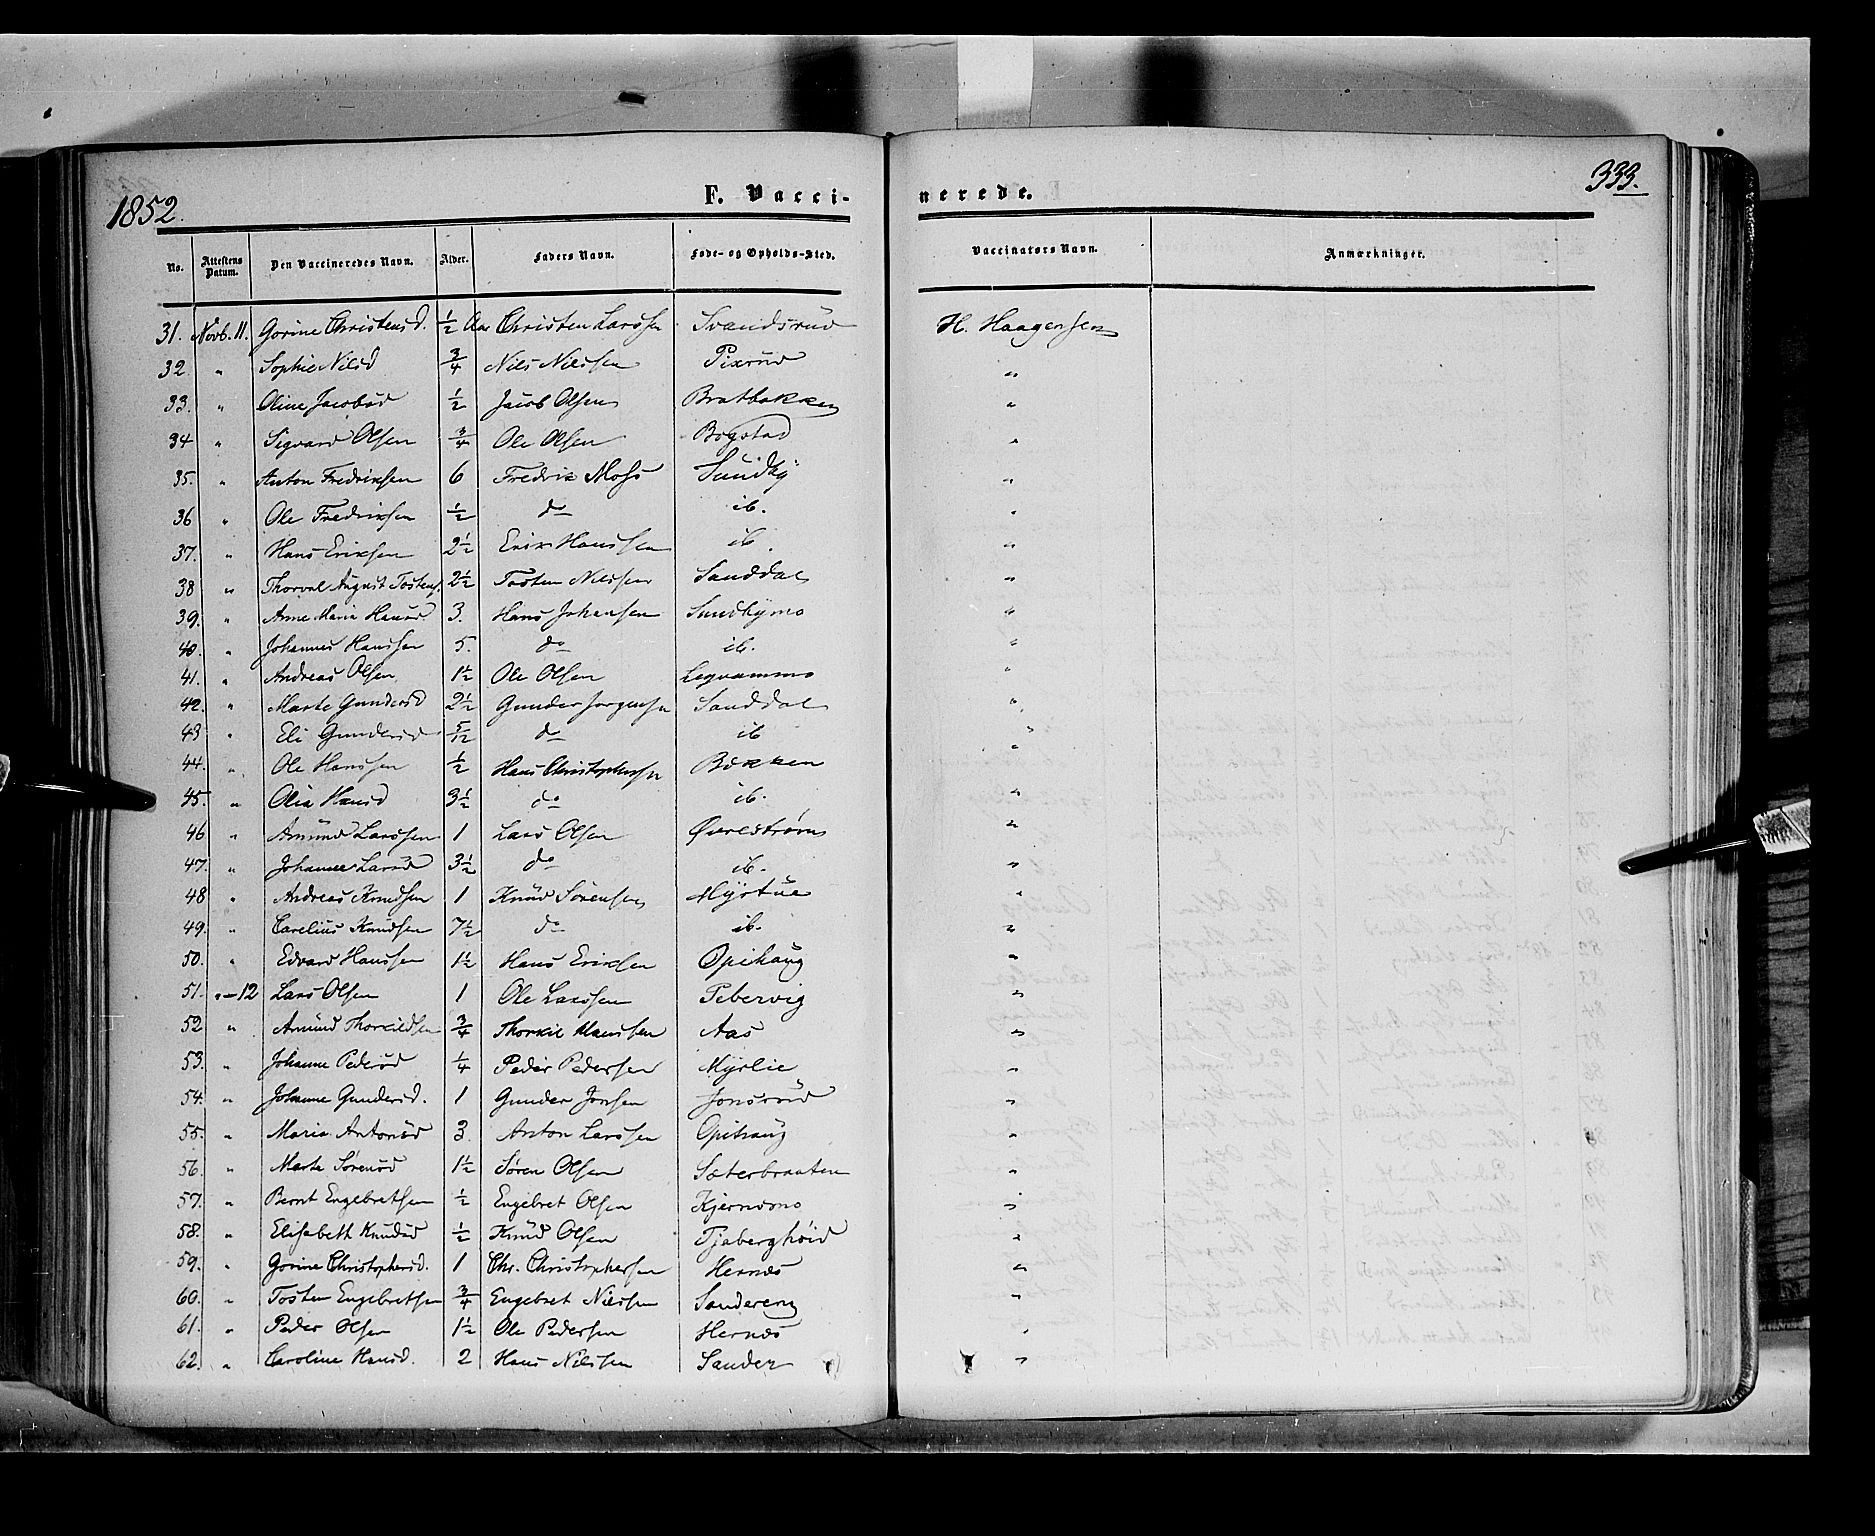 1852.
F. Vaccinerede.
333.
No. Attestens Datum. Den Vaccineredes Navn. Alder. Faders Navn. Føde- og Opholds-Sted. Vaccinators Navn. Anmærkninger.
31. Novb. 11. Gorine Christensd. ½ Aar Christen Larssen Svandsrud H. Haagensen
32. " Sophie Nilsd ¾ Nils Nilssen Pixrud "
33. " Oline Jacobsd ½ Jacob Olsen Bratbakken "
34 " Sigvard Olsen ¾ Ole Olsen Bogstad "
35. " Anton Fredriksen 6 Fredrik Moss Sundby "
36 " Ole Fredriksen ½ do ib. "
37. " Hans Eriksen 2½ Erik Hanssen ib. "
38 " Thorval August Tostens. 2½ Tosten Nilssen Sanddal "
39. " Anne Maria Hansd 3. Hans Johansen Sundbymo "
40. " Johannes Hanssen 5. do ib. "
41. " Andreas Olsen 1½ Ole Olsen Legvammo "
42. " Marte Gundersd 2½ Gunder Jorgensen Sanddal "
43 " Eli Gundersd 5/12 do ib "
44. " Ole Hanssen ½ Hans Christophersen Bakken "
45. " Olia Hansd 3½ do ib. "
46 " Amund Larssen 1 Lars Olsen Øvrestrøm "
47. " Johanne Larsd 3½ do ib. "
48 " Andreas Knudsen 1 Knud Sørensen Myrstue "
49. " Carelius Knudsen 7½ do ib. "
50. " Edvard Hanssen 1½ Hans Eriksen Opihaug "
51. " – 12 Lars Olsen 1 Ole Larssen Pebervig "
52 " Amund Thorkildsen ¾ Thorkil Hanssen Aas "
53. " Johanne Pedersd ¼ Peder Pedersen Myrlie "
54. " Johanne Gundersd. 1 Gunder Jonsen Jonsrud "
55. " Maria Antonsd 3. Anton Larssen Opihaug "
56. " Marte Sørensd 1½ Søren Olsen Sæterbraaten "
57. " Bernt Engebretsen ½ Engebret Olsen Kjernmo "
58. " Elisabeth Knudsd ½ Knud Olsen Tjaberghøid "
59. " Gorine Christophersd. 1 Chr. Christophersen Hernæs "
60. " Tosten Engebretsen ¾ Engebret Nilssen Sandereng "
61. " Peder Olsen 1½ Ole Pedersen Hernæs "
62. " Caroline Hansd. 2 Hans Nilssen Sander "